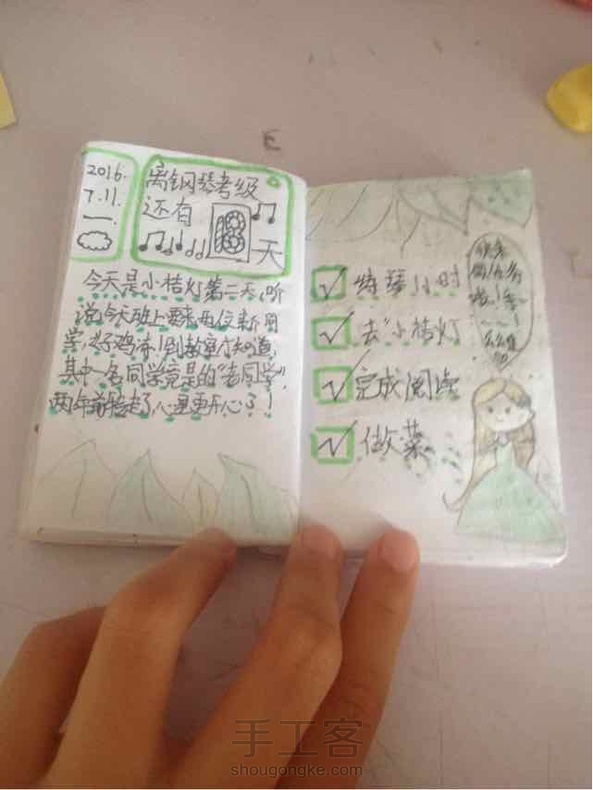 2016.
7.11.
一.
离钢琴考级
还有 18 天
今天是小桔灯第二天,听
说今天班上要来两位新同
学,好鸡冻!到教室才知道,
其中一名同学竟是的"老同学",
两年前 走了心里更开心了!
练琴1小时
去"小桔灯
完成阅读
做菜
快来
E
手工客
shougongke.com